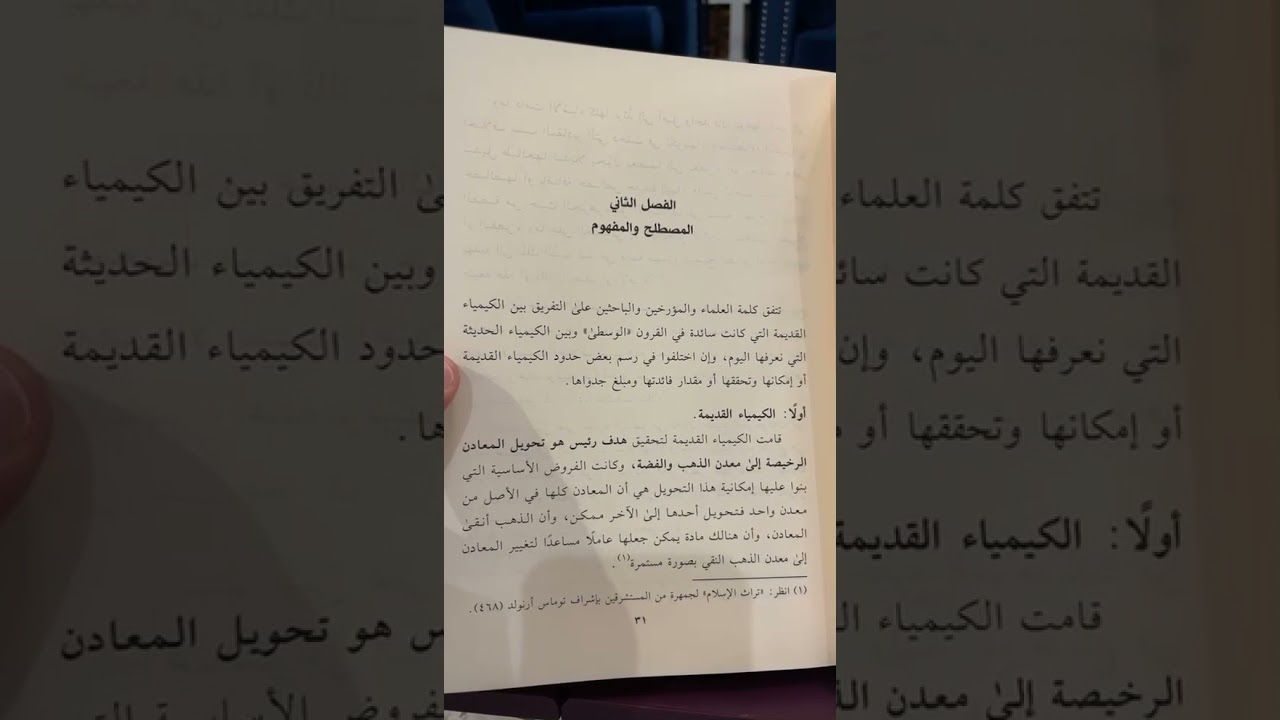 الفصل الثاني
المصطلح والمفهوم
تتفق كلمة العلماء والمؤرخين والباحثين علىٰ التفريق بين الكيمياء
القديمة التي كانت سائدة في القرون «الوسطىٰ» وبين الكيمياء الحديثة
التي نعرفها اليوم، وإن اختلفوا في رسم بعض حدود الكيمياء القديمة
أو إمكانها وتحققها أو مقدار فائدتها ومبلغ جدواها.
أولًا: الكيمياء القديمة.
قامت الكيمياء القديمة لتحقيق هدف رئيس هو تحويل المعادن
الرخيصة إلىٰ معدن الذهب والفضة، وكانت الفروض الأساسية التي
بنوا عليها إمكانية هذا التحويل هي أن المعادن كلها في الأصل من
معدن واحد فتحويل أحدها إلىٰ الآخر ممكن، وأن الذهب أنقىٰ
المعادن، وأن هنالك مادة يمكن جعلها عاملًا مساعدًا لتغيير المعادن
إلىٰ معدن الذهب النقي بصورة مستمرة(١).
(١) انظر: «تراث الإسلام» لجمهرة من المستشرقين بإشراف توماس أرنولد (٤٦٨).
٣١